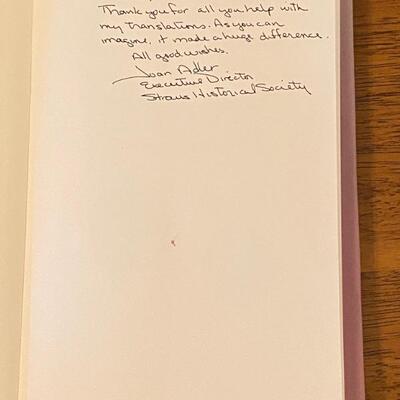 Thank you for all you help with
my translations. As you can
imagine, it made a huge difference.
All good wishes.
Joan Adler
Executive Director
Straus Historical Society